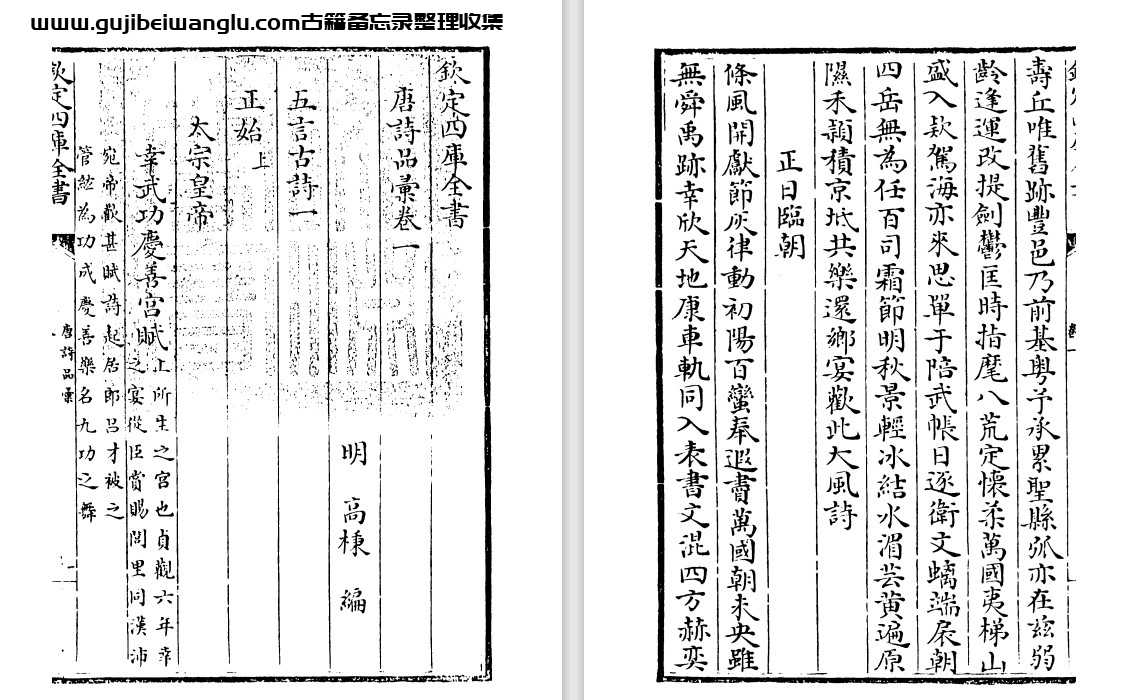 www.gujibeiwanglu.com古籍备忘录整理收集
欽定四庫全書
唐詩品彙卷一
明 高棅 編
五言古詩一
正始上
太宗皇帝
幸武功慶善宮賦
上所生之宮也貞觀六年幸
之宴從臣賞賜閭里同漢沛
宛帝歡甚賦詩起居郎吕才被之
管絃為功成慶善樂名九功之舞
欽定四庫全書
唐詩品彙
壽丘唯舊跡豐邑乃前基粵予承累聖縣弧亦在兹弱
齡逢運改提劍鬱匡時指麾八荒定懷柔萬國夷梯山
盛入欵駕海亦來思單于陪武帳日逐衛文螭端扆朝
四岳無為任百司霜節明秋景輕冰結水湄芸黃遍原
隰禾穎積京坻共樂還鄉宴歡此大風詩
正日臨朝
條風開獻節灰律動初陽百蠻奉遐賮萬國朝未央雖
無舜禹跡幸欣天地康車軌同八表書文混四方赫奕